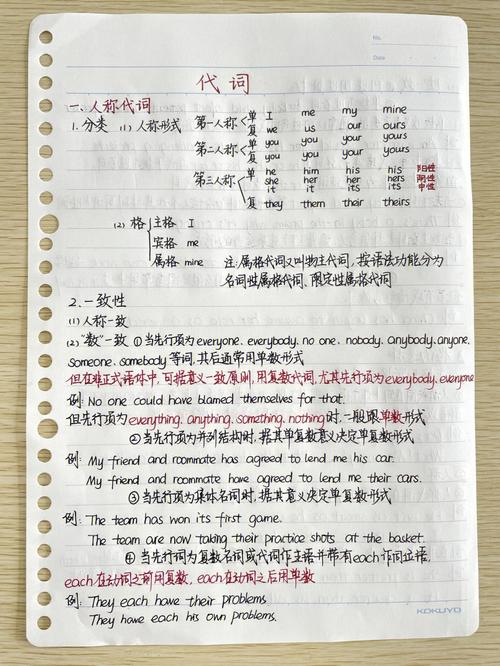 No.
Date
代词
一、人称代词
1. 分类 (1) 人称形式 第一人称 单 I me my mine
复 we us our ours
第二人称 单 you you your yours
复 you you your yours
第三人称 单 he him his his 阳性
she her her hers 阴性
it it its its 中性
复 they them their theirs
(2) 格 主格 I
宾格 me
属格 mine 注:属格代词又叫物主代词,按语法功能分为
名词性属格代词、限定性属格代词
2. 一致性
(1) 人称一致
(2) “数”一致 ①当先行项为everyone. everybody. no one. nobody. anybody. anyone.
someone. somebody 等词,其后通常用单数形式
但在非正式语体中,可据意义一致原则,用复数代词,尤其先行项为everybody. everyone
例: No one could have blamed themselves for that.
但先行项为everything. anything. something. nothing时,一般跟单数形式
②当先行项为并列结构时,据其单复数意义决定单复数形式
例: My friend and roommate has agreed to lend me his car.
My friend and roommate have agreed to lend me their cars.
③当先行项为集体名词时,据其意义决定单复数形式
例: The team has won its first game.
The team are now taking their practice shots at the basket.
④当先行词为复数名词或代词作主语并带有each作同位语,
each在动词之前用复数,each在动词之后用单数
例: They each have their problems.
They have each his own problems.
KOKUYO